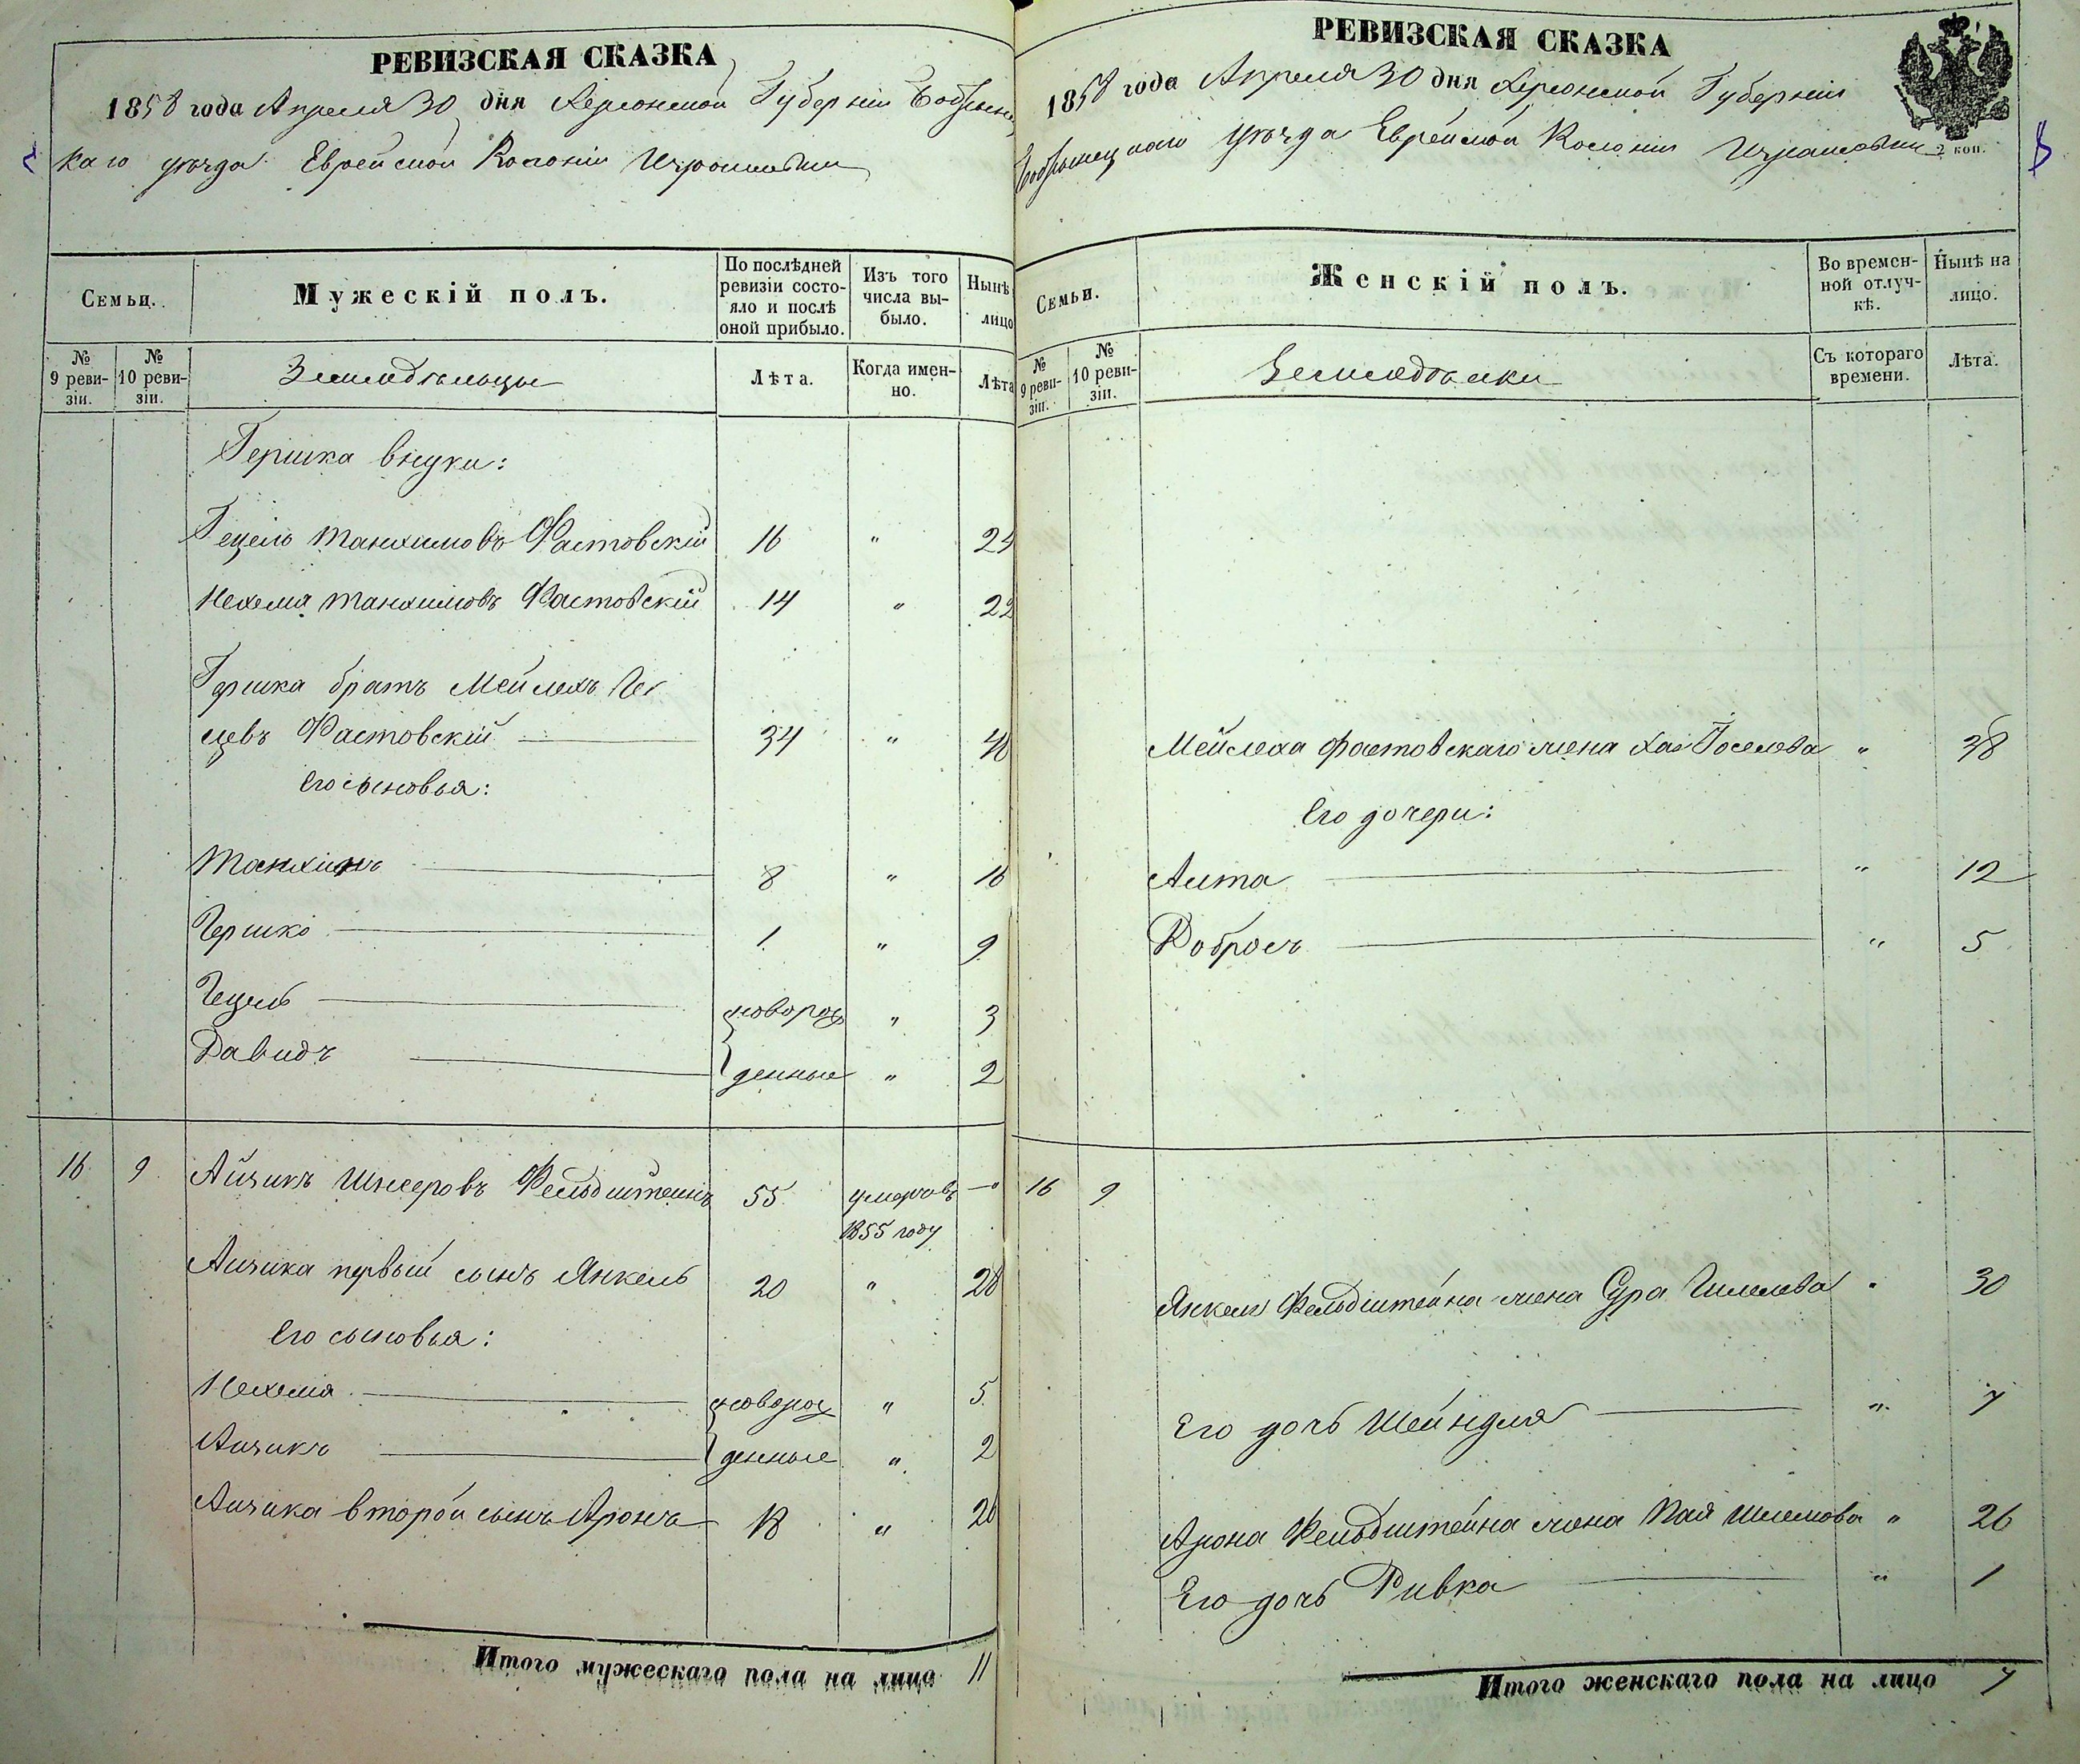 РЕВИЗСКАЯ СКАЗКА
1858 года Апреля 30 дня Херсонской Губернии Бобринец
каго уѣзда Еврейской Колоніи Израилевки
Семьи.
Мужескій полъ.
По послѣдней ревизіи состо-
яло и послѣ
оной прибыло.
Изъ того
числа вы-
было.
Нынѣ
лицо
№
9 реви-
зіи.
№
10 реви-
зіи.
Земледѣльцы
Лѣта.
Когда имен-
но.
Лѣта
Гершка внуки:
Гецель Танхимовъ Фастовскій 16 " 24
Нехемя Танхимовъ Фастовскій 14 " 22
Гершка братъ Мейлехъ Ге
цевъ Фастовскій 34 " 40
Его сыновья:
Танхимъ 8 " 16
Гершко 1 " 9
Гецель новорож " 3
Давидъ денные " 2
16 9 Айзикъ Шнееровъ Фельдштейнъ 55 умеръ въ —
1855 году
Айзика первый сынъ Янкель 20 " 28
Его сыновья:
Нехемя новорож " 5
Айзикъ денные " 2
Айзика второй сынъ Аронъ 18 " 26
Итого мужескаго пола на лицо 11
РЕВИЗСКАЯ СКАЗКА
1858 года Апреля 30 дня Херсонской Губерніи
Бобринецкаго уѣзда Еврейской Колоніи Израилевки
2 коп.
Семьи.
Женскій полъ.
Во времен-
ной отлуч-
кѣ.
Нынѣ на
лицо.
№
9 реви-
зіи.
№
10 реви-
зіи.
Земледѣлки
Съ котораго
времени.
Лѣта.
Мейлеха Фастовскаго жена Хая Іоселева " 38
Его дочери:
Аита " 12
Добросъ " 5
16 9
Янкеля Фельдштейна жена Сура Гилелева " 30
Его дочь Шейндля " 7
Арона Фельдштейна жена Пая Шлемова " 26
Его дочь Ривка " 1
Итого женскаго пола на лицо 7